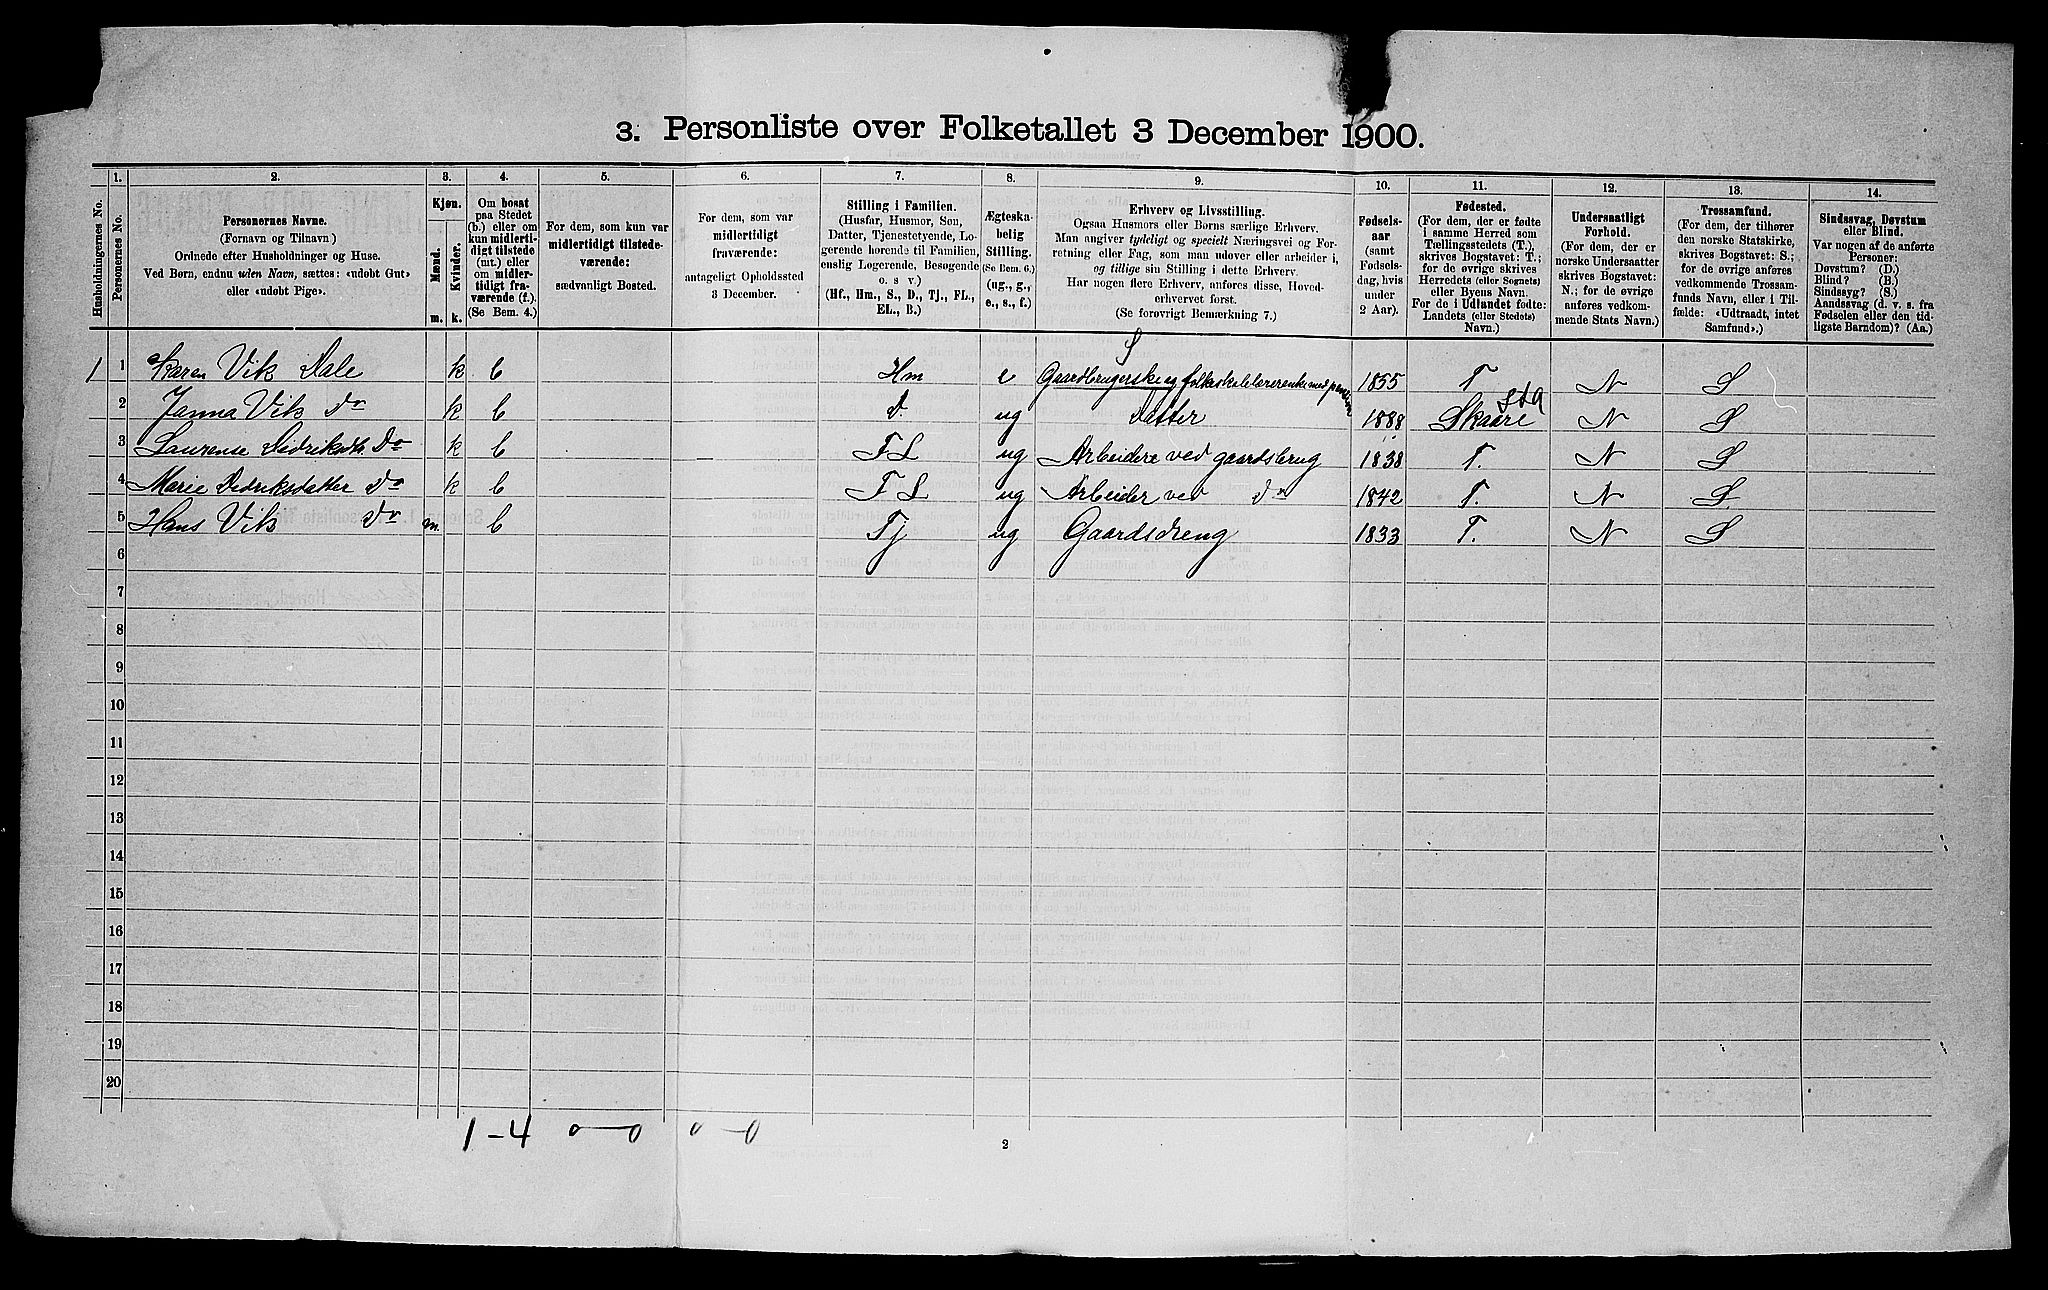 3. Personliste over Folketallet 3 December 1900.
1. 2. 3. 4. 5. 6. 7. 8. 9. 10. 11. 12. 13. 14.
Husholdningernes No.
Personernes No.
Personernes Navne.
(Fornavn og Tilnavn)
Ordnede efter Husholdninger og Huse.
Ved Børn, endnu uden Navn, sættes: «udøbt Gut»
eller «udøbt Pige».
Kjøn.
Mænd.
Kvinder.
m. k.
Om bosat
paa Stedet
(b.) eller om
kun midlerti-
digt tilstede
(mt.) eller
om midler-
tidigt fra-
værende (f.).
(Se Bem. 4.)
For dem, som kun var
midlertidigt tilstede-
værende:
sædvanligt Bosted.
For dem, som var
midlertidigt
fraværende:
antageligt Opholdssted
3 December.
Stilling i Familien.
(Husfar, Husmor, Søn,
Datter, Tjenestetyende, Lo-
gerende hørende til Familien,
enslig Logerende, Besøgende
o. s v.)
(Hf., Hm., S., D., Tj., FL.,
EL., B.)
Ægteska-
belig
Stilling.
(Se Bem. 6.)
(ug., g.,
e., s., f.)
Erhverv og Livsstilling.
Ogsaa Husmors eller Børns særlige Erhverv.
Man angiver tydeligt og specielt Næringsvei og For-
retning eller Fag, som man udøver eller arbeider i,
og tillige sin Stilling i dette Erhverv.
Har nogen flere Erhverv, anføres disse, Hoved-
erhvervet først.
(Se forøvrigt Bemærkning 7.)
Fødsels-
aar
(samt
Fødsels-
dag, hvis
under
2 Aar).
Fødested.
(For dem, der er fødte
i samme Herred som
Tællingsstedets (T.),
skrives Bogstavet: T.;
for de øvrige skrives
Herredets (eller Sognets)
eller Byens Navn.
For de i Udlandet fødte:
Landets (eller Stedets)
Navn.)
Undersaatligt
Forhold.
(For dem, der er
norske Undersaatter
skrives Bogstavet:
N.; for de øvrige
anføres vedkom-
mende Stats Navn.)
Trossamfund.
(For dem, der tilhører
den norske Statskirke,
skrives Bogstavet: S.;
for de øvrige anføres
vedkommende Trossam-
funds Navn, eller i Til-
fælde: «Udtraadt, intet
Samfund».)
Sindssvag, Døvstum
eller Blind.
Var nogen af de anførte
Personer:
Døvstum? (D.)
Blind? (B.)
Sindssyg? (S.)
Aandssvag (d. v. s. fra
Fødselen eller den tid-
ligste Barndom)? (Aa.)
S
1 1 Karen Vik Dale k b Hm e Gaardbrugerske og folkeskolelærerinde med pension 1855 T N S
2 Janna Vik Do k b D. ug Datter 1888 Skaare N S
3 Laurense Didriksdtr. Do k b FL ug Arbeidere ved gaardsbrug 1838 T. N S
4 Marie Dedriksdatter Do k b FL ug Arbeider ved Do 1842 T. N S.
5 Hans Vik Do m b Tj ug Gaardsdreng 1833 T. N S
6
7
8
9
10
11
12
13
14
15
16
17
18
19
20
1-4 0-0 0-0
2